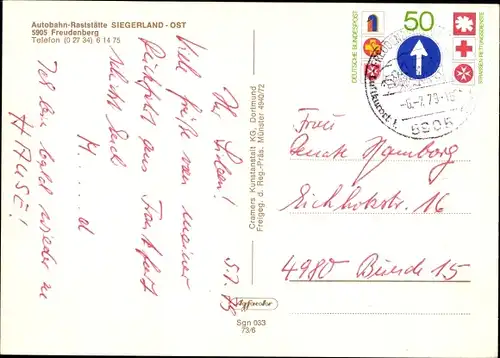 Autobahn-Raststätte SIEGERLAND-OST
5905 Freudenberg
Telefon (0 27 34) 6 14 75
5.7.79
Ihr Lieben!
Viele Grüße von meiner
Rückfahrt aus Frankfurt
schickt Euch
M.....d
Ich bin bald wieder zu
HAUSE!
Cramers Kunstanstalt KG, Dortmund
Freigeg. d. Reg.-Präs. Münster 4940/72
Sgn 033
73/6
DEUTSCHE BUNDESPOST
50
STRASSEN-RETTUNGSDIENSTE
5905
Frau
Hamborg
Eichholzstr. 16
4980 Bünde 15